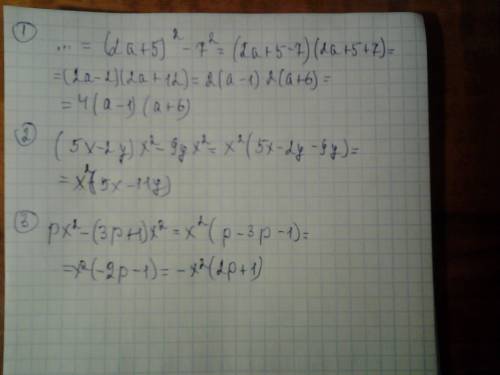 ① ... = (2a+5)² - 7² = (2a+5-7)(2a+5+7)=
=(2a-2)(2a+12)= 2(a-1) 2(a+6)=
= 4(a-1)(a+6)
② (5x-2y)x²-9yx²= x²(5x-2y-9y)=
= x²(5x-11y)
③ px²-(3p+1)x² = x²(p-3p-1)=
=x²(-2p-1)= -x²(2p+1)